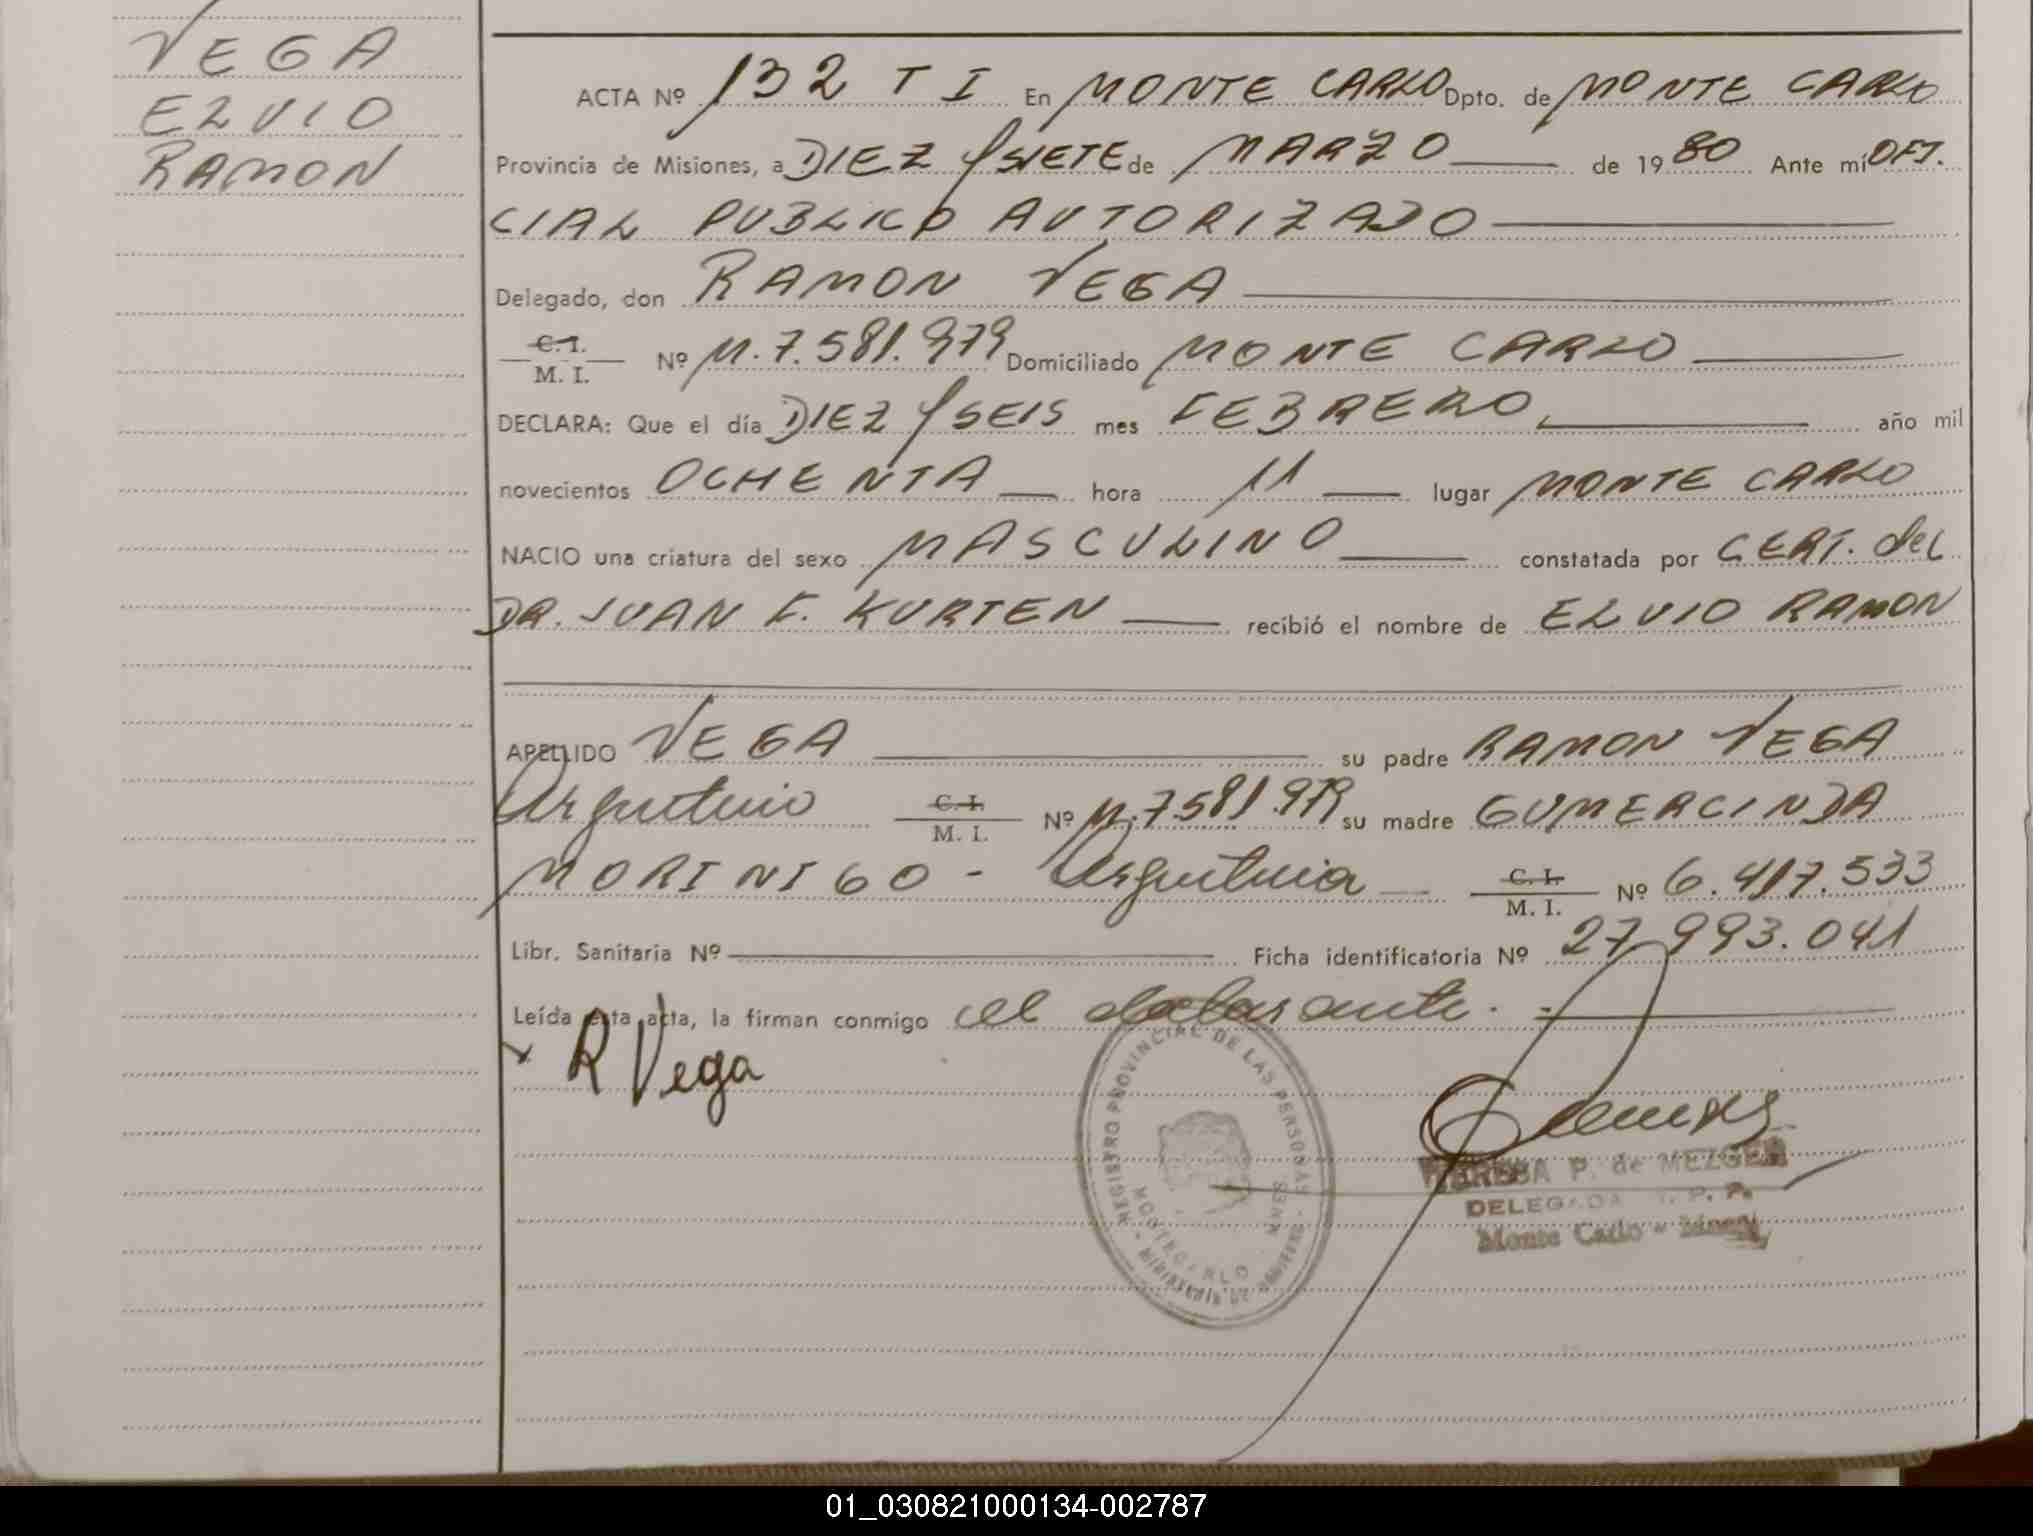 VEGA
ELVIO
RAMON
ACTA Nº 132 T I En MONTE CARLO Dpto. de MONTE CARLO
Provincia de Misiones, a DIEZ Y SIETE de MARZO de 1980 Ante mí OFI.
CIAL PUBLICO AUTORIZADO
Delegado, don RAMON VEGA
C. I.
M. I. Nº M. 7.581.979 Domiciliado MONTE CARLO
DECLARA: Que el día DIEZ Y SEIS mes FEBRERO año mil
novecientos OCHENTA hora 11 lugar MONTE CARLO
NACIO una criatura del sexo MASCULINO constatada por CERT. del
DR. JUAN F. KURTEN recibió el nombre de ELVIO RAMON
APELLIDO VEGA su padre RAMON VEGA
Argentino C. I. M. I. Nº M. 7.581.979 su madre GUMERCINDA
MORINIGO - Argentina C. I. M. I. Nº 6.417.533
Libr. Sanitaria Nº Ficha identificatoria Nº 27.993.041
Leída esta acta, la firman conmigo el declarante.
R Vega
REGISTRO PROVINCIAL DE LAS PERSONAS
MONTECARLO
TERESA P. de MEZGER
DELEGADA R. P. P.
Monte Carlo - Mnes
01_030821000134-002787